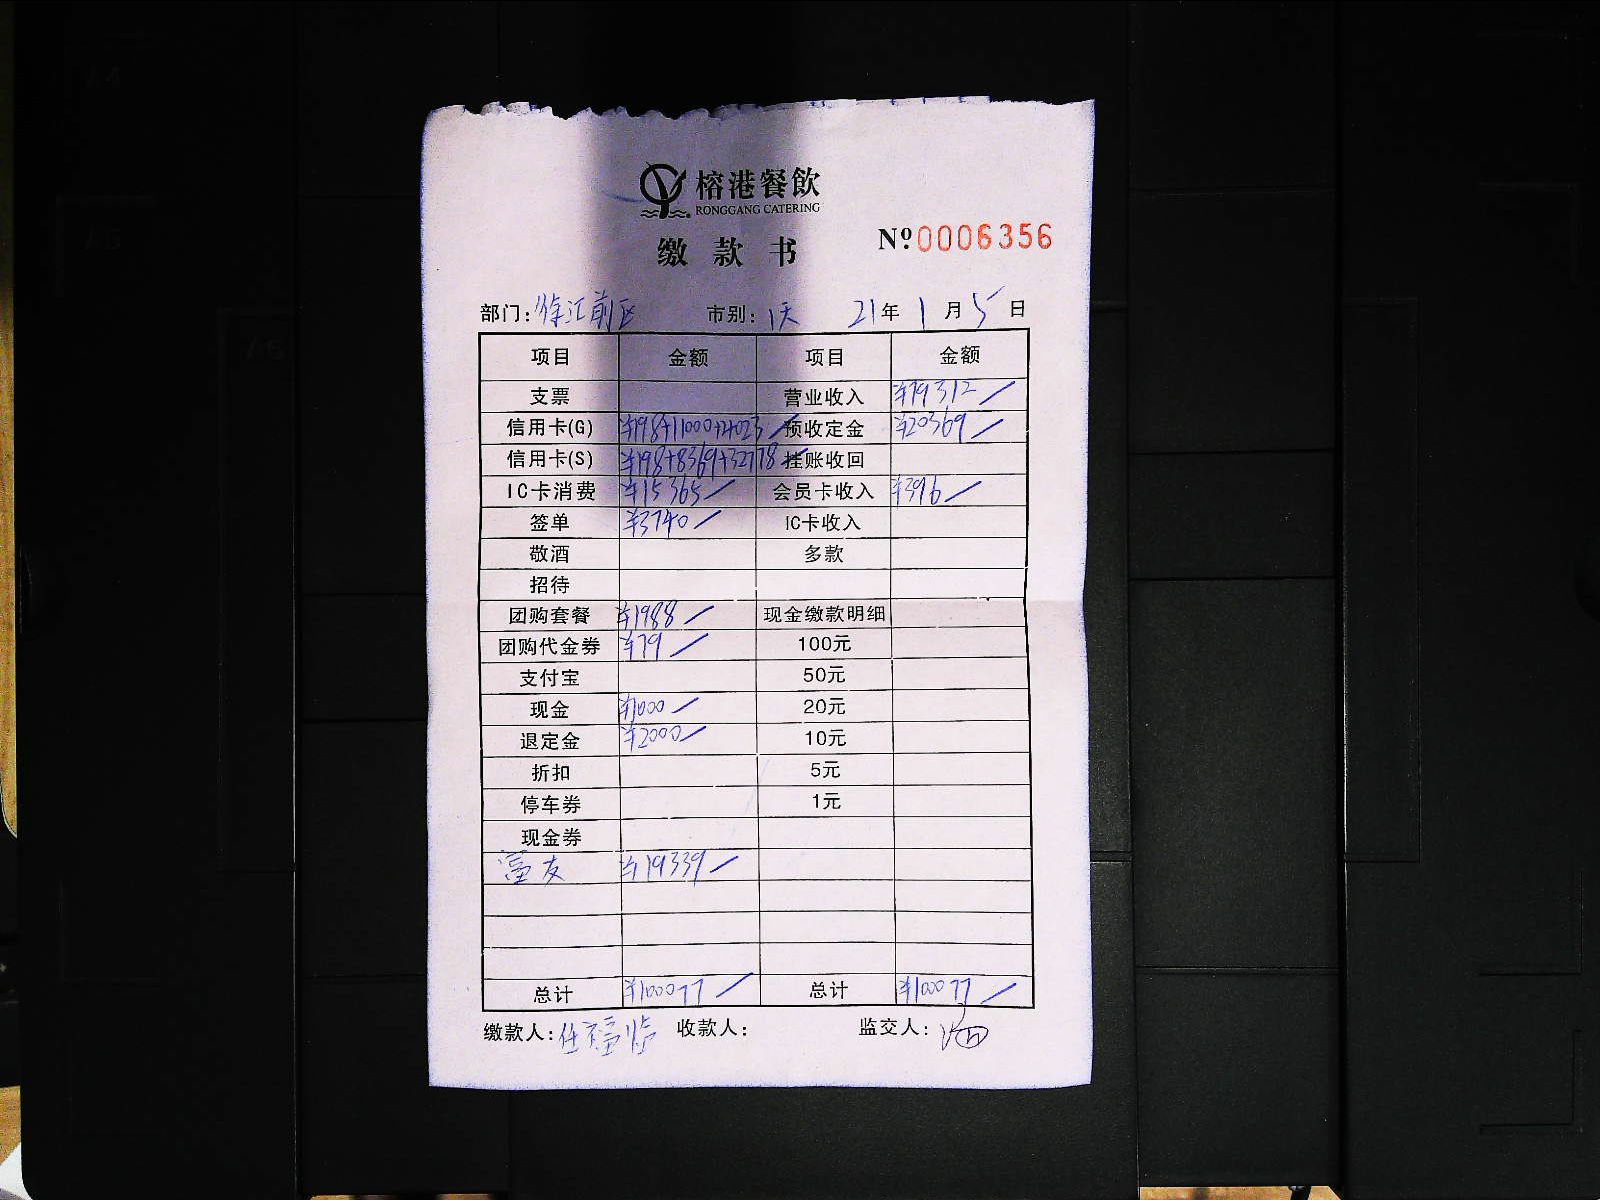 榕港餐飲
RONGGANG CATERING
缴款书
Nº0006356
部门:徐汇前区 市别:1天 21年1月5日
项目 金额 项目 金额
支票 营业收入 ¥79312
信用卡(G) ¥198+11000+4023 预收定金 ¥20369
信用卡(S) ¥198+8369+32778 挂账收回
IC卡消费 ¥15365 会员卡收入 ¥396
签单 ¥3740 IC卡收入
敬酒 多款
招待
团购套餐 ¥1988 现金缴款明细
团购代金券 ¥79 100元
支付宝 50元
现金 ¥1000 20元
退定金 ¥2000 10元
折扣 5元
停车券 1元
现金券
富友 ¥19339
总计 ¥100077 总计 ¥100077
缴款人: 收款人: 监交人: